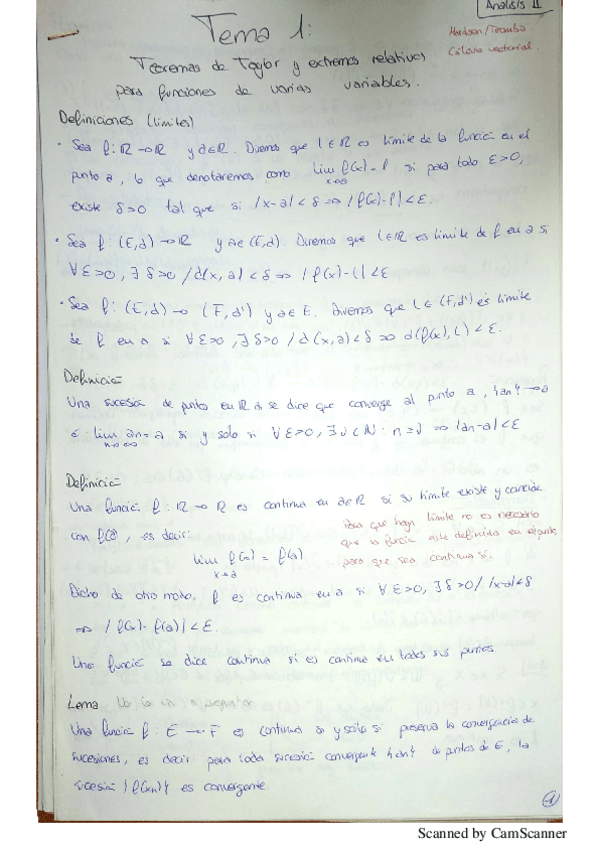 Análisis II
Tema 1:
Marsden/Tromba
Cálculo vectorial.
Teoremas de Taylor y extremos relativos
para funciones de varias variables.
Definiciones (límites)
· Sea f: ℝ → ℝ y a∈ℝ. Diremos que l∈ℝ es límite de la función en el
punto a, lo que denotaremos como lim f(x)=l, si para todo ε>0,
x→a
existe δ>0 tal que si |x-a|<δ ⇒ |f(x)-l|<ε.
· Sea f: (E,d) → ℝ y a∈(E,d). Diremos que l∈ℝ es límite de f en a si
∀ε>0, ∃δ>0 / d(x,a)<δ ⇒ |f(x)-l|<ε
· Sea f: (E,d) → (F,d') y a∈E. Diremos que l∈(F,d') es límite
de f en a si ∀ε>0, ∃δ>0 / d(x,a)<δ ⇒ d(f(x),l)<ε.
Definición
Una sucesión de puntos en ℝ se dice que converge al punto a, {an} → a
ó lim an = a si y solo si ∀ε>0, ∃ν∈ℕ : n≥ν ⇒ |an-a|<ε
n→∞
Definición
Una función f: ℝ → ℝ es continua en a∈ℝ si su límite existe y coincide
con f(a), es decir:
lim f(x) = f(a)
x→a
Para que haya límite no es necesario
que la función esté definida en el punto,
para que sea continua sí.
Dicho de otro modo, f es continua en a si ∀ε>0, ∃δ>0 / |x-a|<δ
⇒ |f(x)-f(a)|<ε.
Una función se dice continua si es continua en todos sus puntos
Lema
Una función f: E → F es continua si y solo si preserva la convergencia de
sucesiones, es decir para toda sucesión convergente {an} de puntos de E, la
sucesión {f(xn)} es convergente
1
Scanned by CamScanner